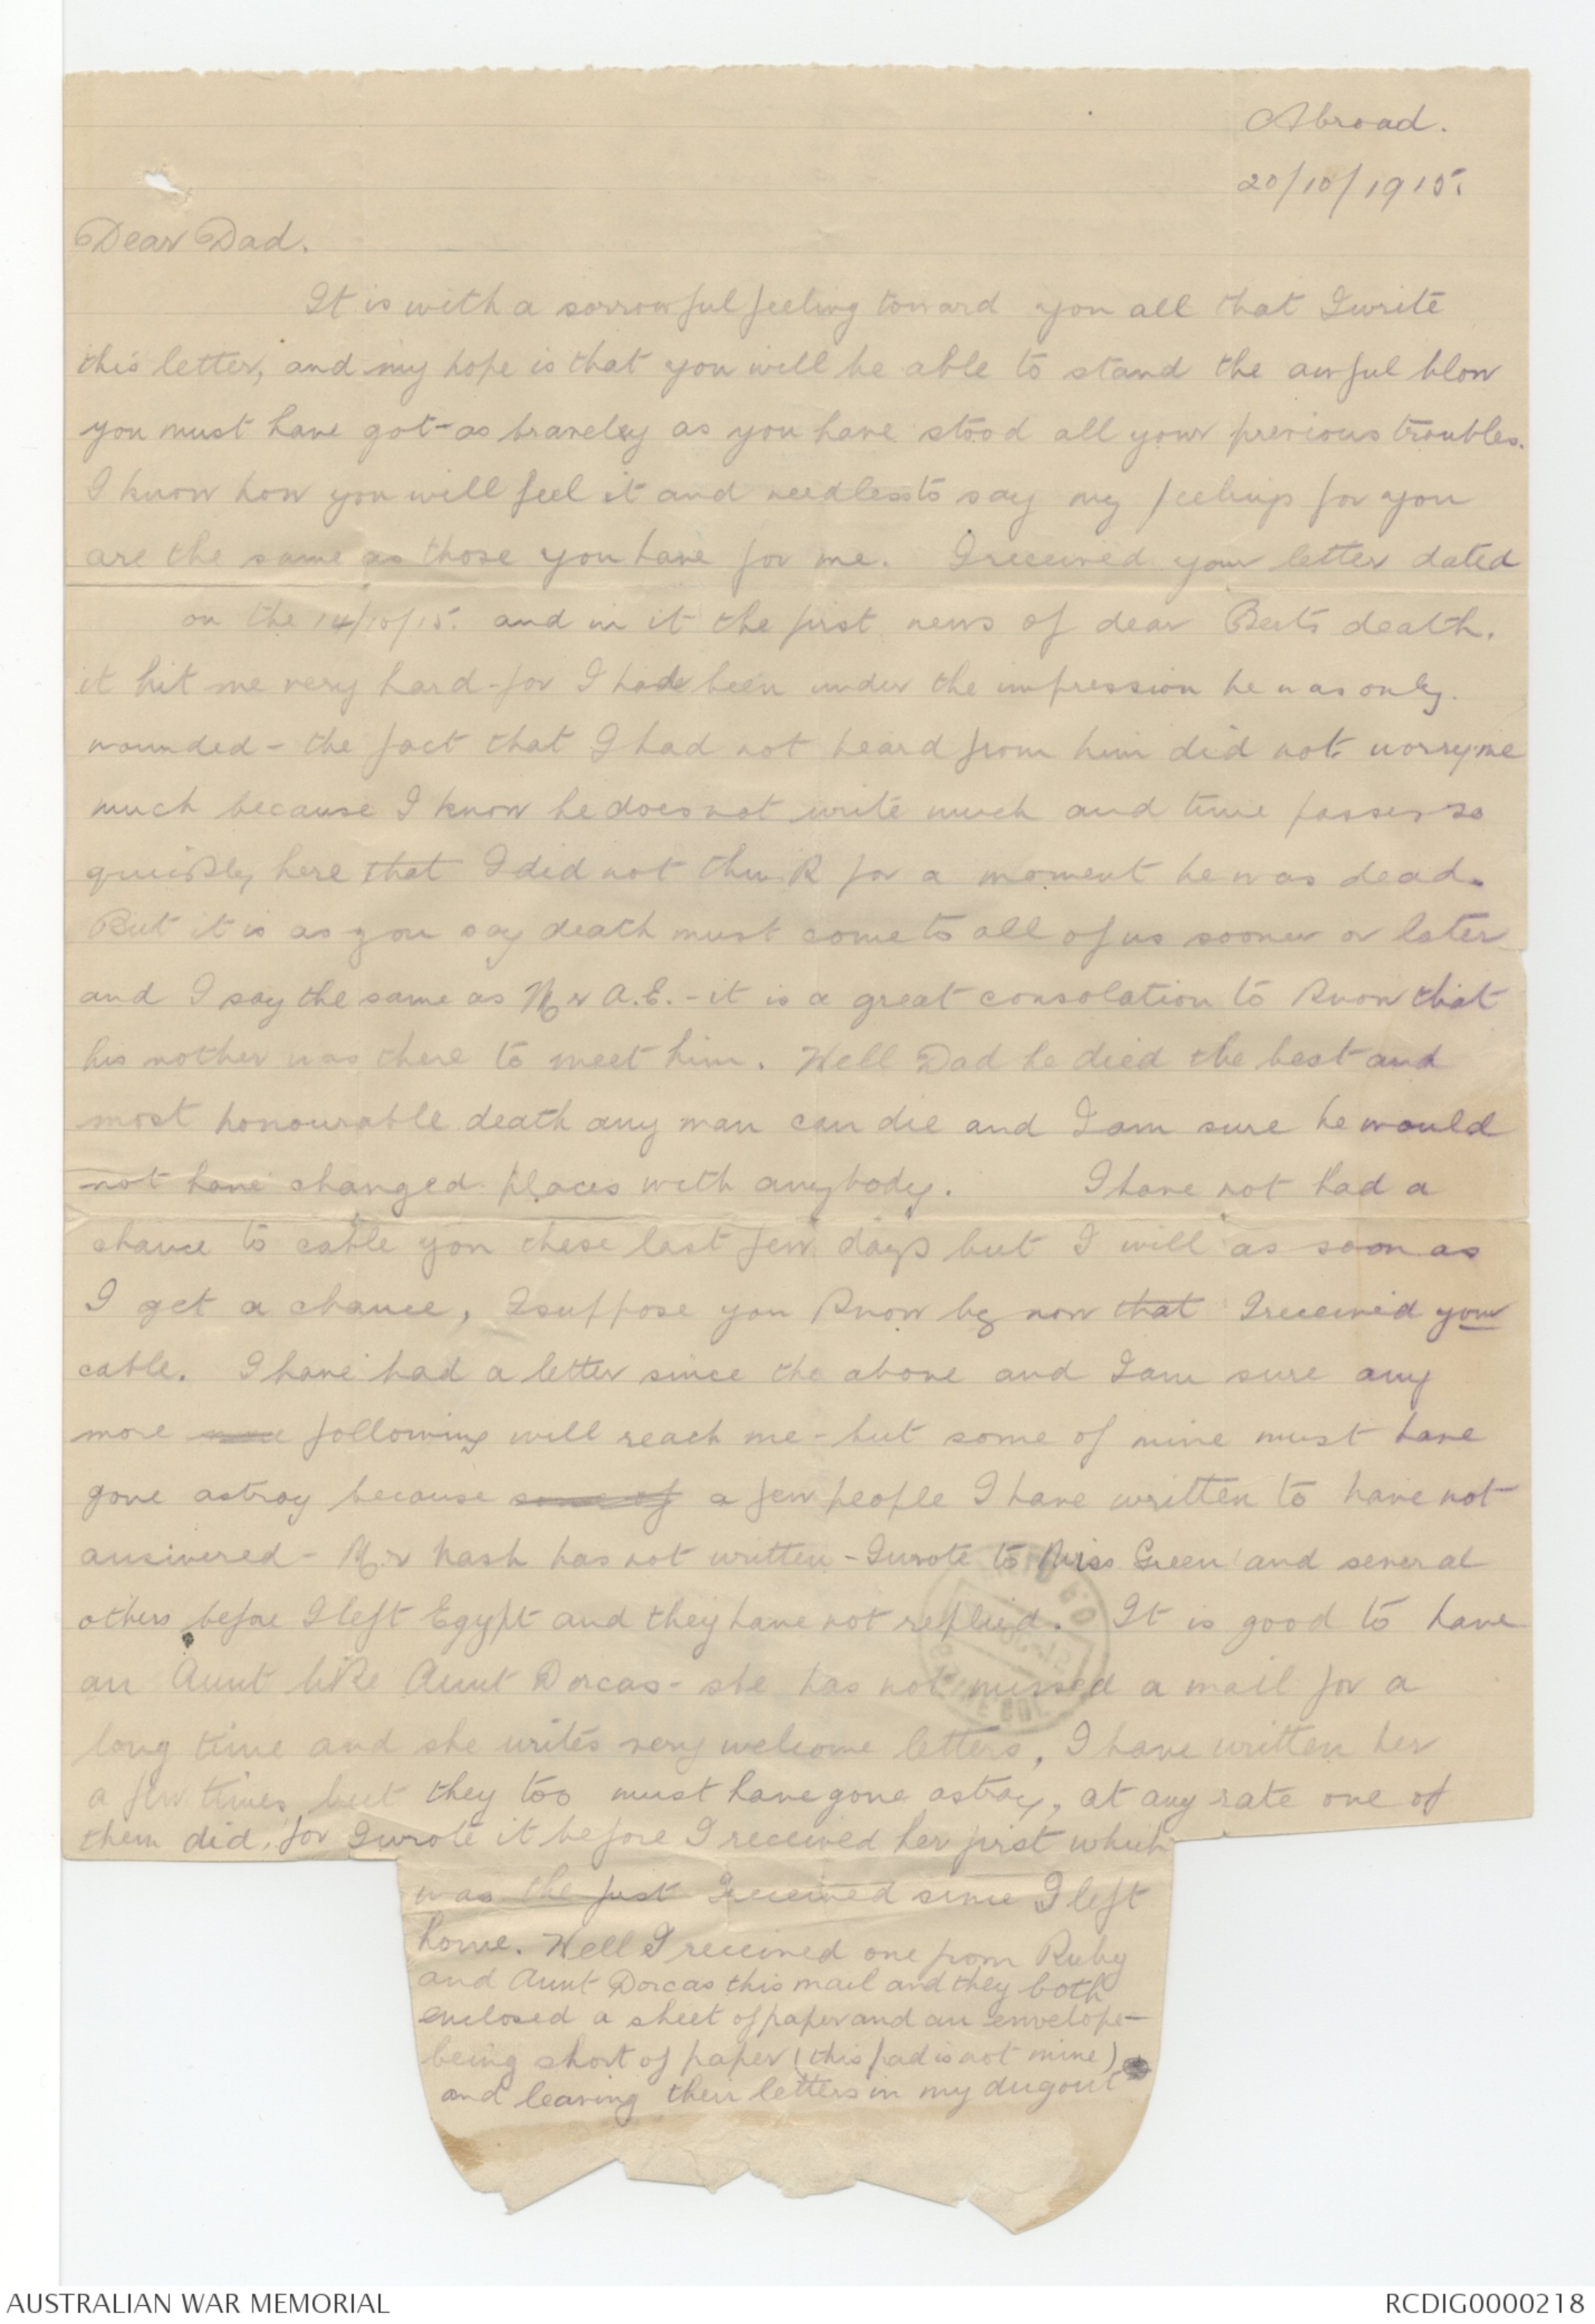 Abroad.
20/10/1915.
Dear Dad.
It is with a sorrowful feeling toward you all that I write
this letter, and my hope is that you will be able to stand the awful blow
you must have got - as braveley as you have stood all your previous troubles.
I know how you will feel it and needless to say my feelings for you
are the same as those you have for me. I received your letter dated
on the 14/10/15. and in it the first news of dear Berts death.
it hit me very hard - for I had been under the impression he was only
wounded - the fact that I had not heard from him did not worry me
much because I know he does not write much and time passes so
quickly here that I did not think for a moment he was dead.
But it is as you say death must come to all of us sooner or later
and I say the same as Mr A.E. - it is a great consolation to know that
his mother was there to meet him. Well Dad he died the best and
most honourable death any man can die and I am sure he would
not have changed places with anybody. I have not had a
chance to cable you these last few days but I will as soon as
I get a chance, I suppose you know by now that I received your
cable. I have had a letter since the above and I am sure any
more following will reach me - but some of mine must have
gone astray because some of a few people I have written to have not
answered - Mr Nash has not written - I wrote to Miss Green and several
others before I left Egypt and they have not replied. It is good to have
an Aunt like Aunt Dorcas - she has not missed a mail for a
long time and she writes very welcome letters, I have written her
a few times but they too must have gone astray, at any rate one of
them did, for I wrote it before I received her first which
was the first I received since I left
home. Well I received one from Ruby
and Aunt Dorcas this mail and they both
enclosed a sheet of paper and an envelope -
being short of paper (this pad is not mine)
and leaving their letters in my dugout
AUSTRALIAN WAR MEMORIAL
RCDIG0000218